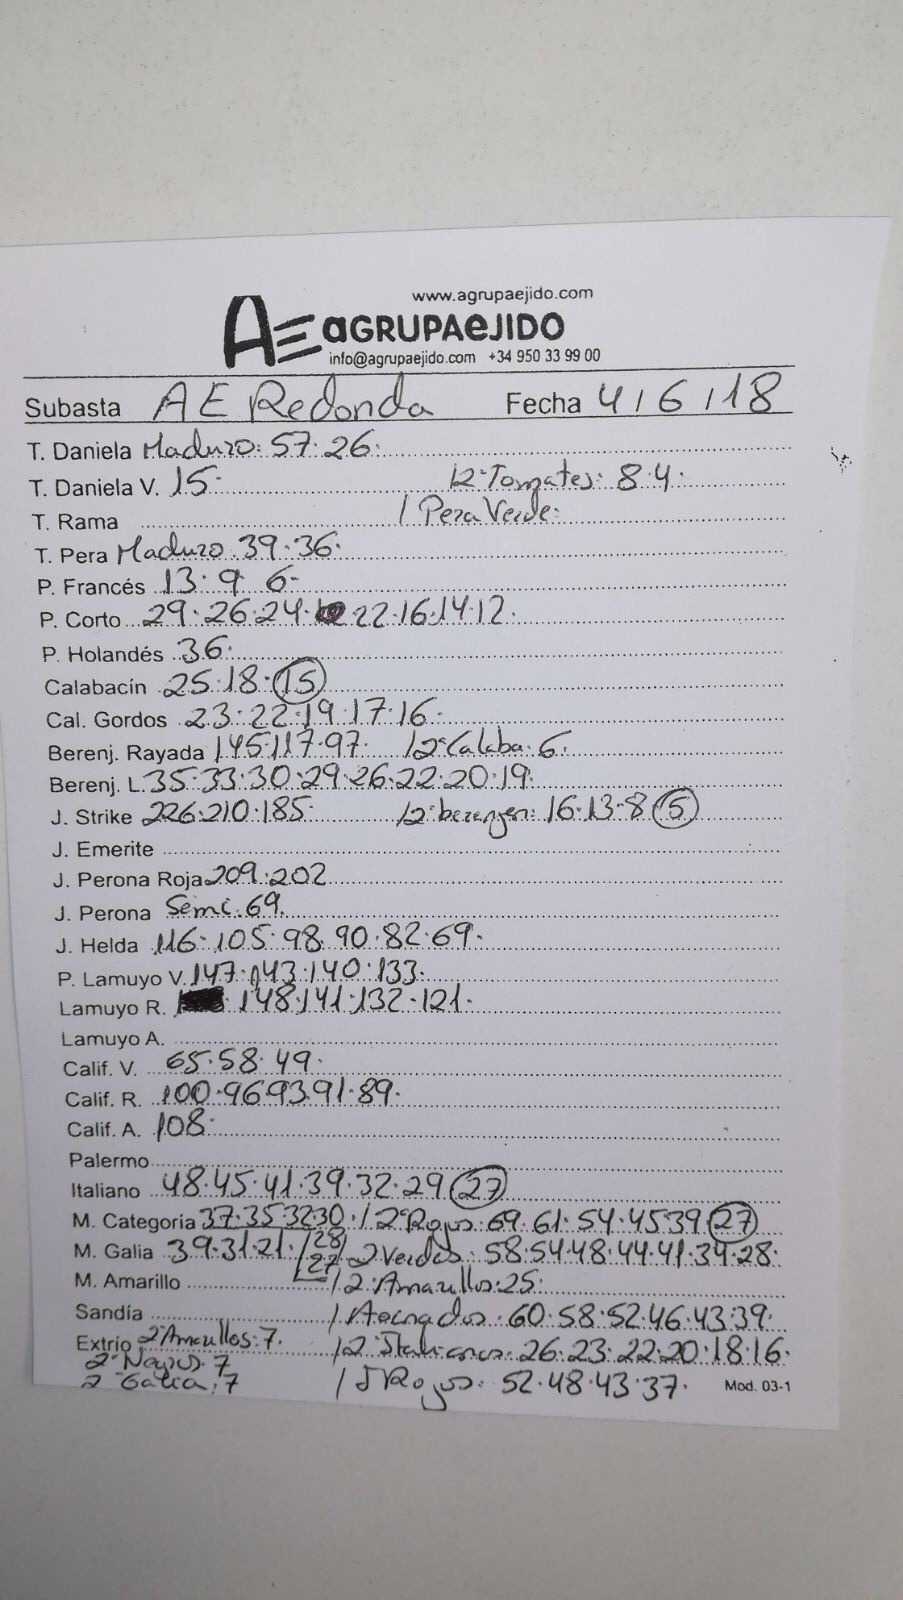 www.agrupaejido.com
AE aGRUPAeJIDO
info@agrupaejido.com +34 950 33 99 00
Subasta AE Redonda Fecha 4/6/18
T. Daniela Maduro: 57·26·
T. Daniela V. 15· /2ª Tomates: 8·4·
T. Rama / Pera Verde:
T. Pera Maduro 39·36·
P. Francés 13·9·6·
P. Corto 29·26·24· 22·16·14·12·
P. Holandés 36·
Calabacín 25·18·15
Cal. Gordos 23·22·19·17·16·
Berenj. Rayada 145·117·97· /2ª Calaba·6·
Berenj. L 35·33·30·29·26·22·20·19·
J. Strike 226·210·185· /2ª berenjen: 16·13·8 5
J. Emerite
J. Perona Roja 209·202
J. Perona Semi·69·
J. Helda 116·105·98·90·82·69·
P. Lamuyo V. 147·143·140·133·
Lamuyo R. 148·141·132·121·
Lamuyo A.
Calif. V. 65·58·49·
Calif. R. 100·96·93·91·89·
Calif. A. 108·
Palermo
Italiano 48·45·41·39·32·29 27
M. Categoria 37·35·32·30· /2ª Rojos: 69·61·54·45·39·27
M. Galia 39·31·21· /28/ 27 /2 Verdes: 58·54·48·44·41·34·28·
M. Amarillo /2ª Amarillos: 25·
Sandía / Asurcados: 60·58·52·46·43·39·
Extrio 2ª Amarillos: 7· /2 Italianos: 26·23·22·20·18·16·
2ª Negros: 7
2ª Galia: 7 / J Rojos: 52·48·43·37· Mod. 03-1